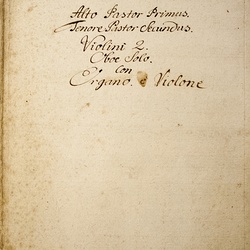 Alto Pastor Primus.
Tenore Pastor Secundus.
Violini 2.
Oboe Solo.
Con
Organo. e Violone